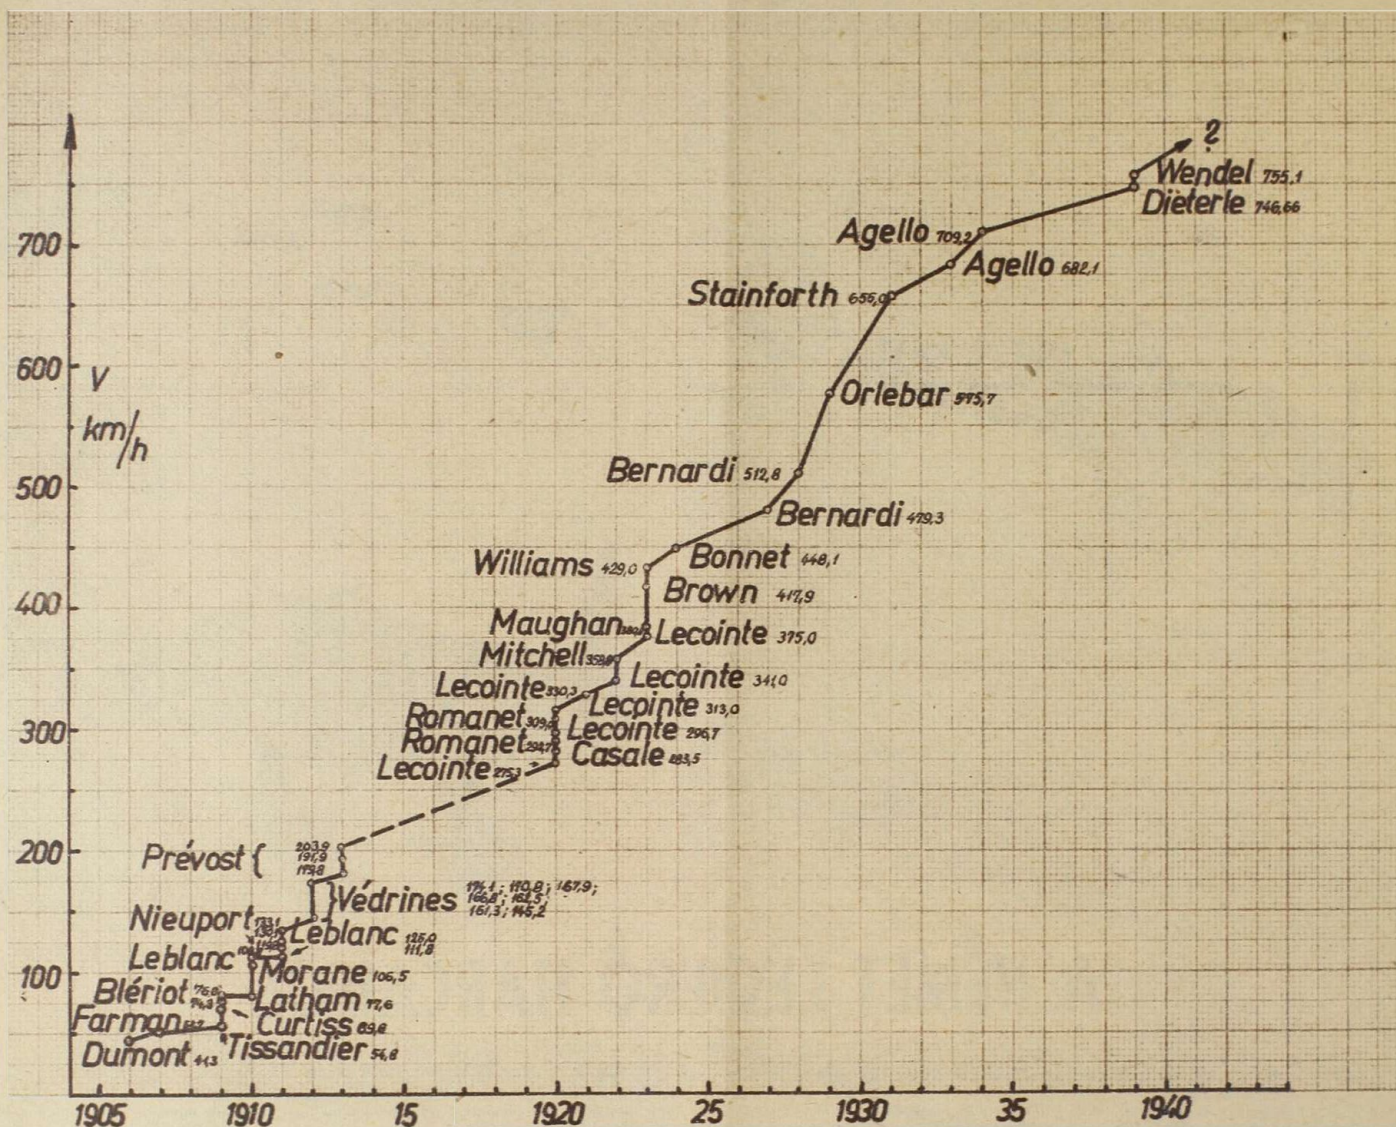 ?
Wendel 755,1
Dieterle 746,66
Agello 709,2
700
Agello 682,1
Stainforth 655,0
600
V
km/h
Orlebar 575,7
Bernardi 512,8
500
Bernardi 479,3
Williams 429,0
Bonnet 448,1
Brown 417,9
400
Maughan
Lecointe 375,0
Mitchell
Lecointe 341,0
Lecointe 330,3
Lecointe 313,0
Romanet
300
Lecointe 296,7
Romanet
Casale 283,5
Lecointe 275,3
200
Prévost {
203,9
191,9
179,8
}Védrines 174,1; 170,8; 167,9;
166,8; 162,5;
161,3; 145,2
Nieuport 133,1
Leblanc 125,0
111,8
Leblanc
100
Morane 106,5
Blériot
Latham 77,6
Farman
Curtiss 69,8
Dumont 41,3
Tissandier 54,8
1905 1910 15 1920 25 1930 35 1940